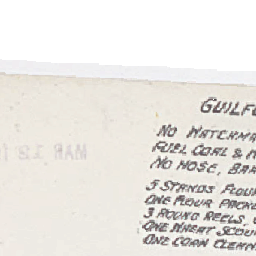 GUILF
NO WATCHMA
FUEL COAL &
NO HOSE, BAR
5 STANDS FLOU
ONE FLOUR PACK
3 ROUND REELS,
ONE WHEAT SCOU
ONE CORN CLEAN
MAR 12